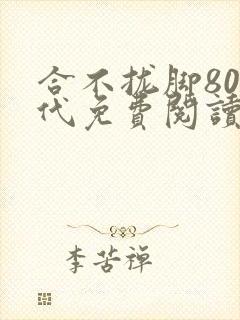 合不拢脚80
代免費閱讀
李苦禅